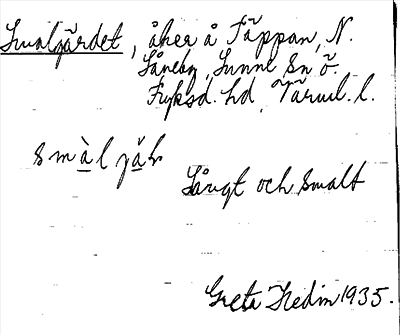 Smalgärdet, åker å Täppan, N.
Låneby, Sunne sn ö.
Fryksd. hd, Värml. l.
smàljäḷ
Långt och smalt
Greta Hedin 1935.